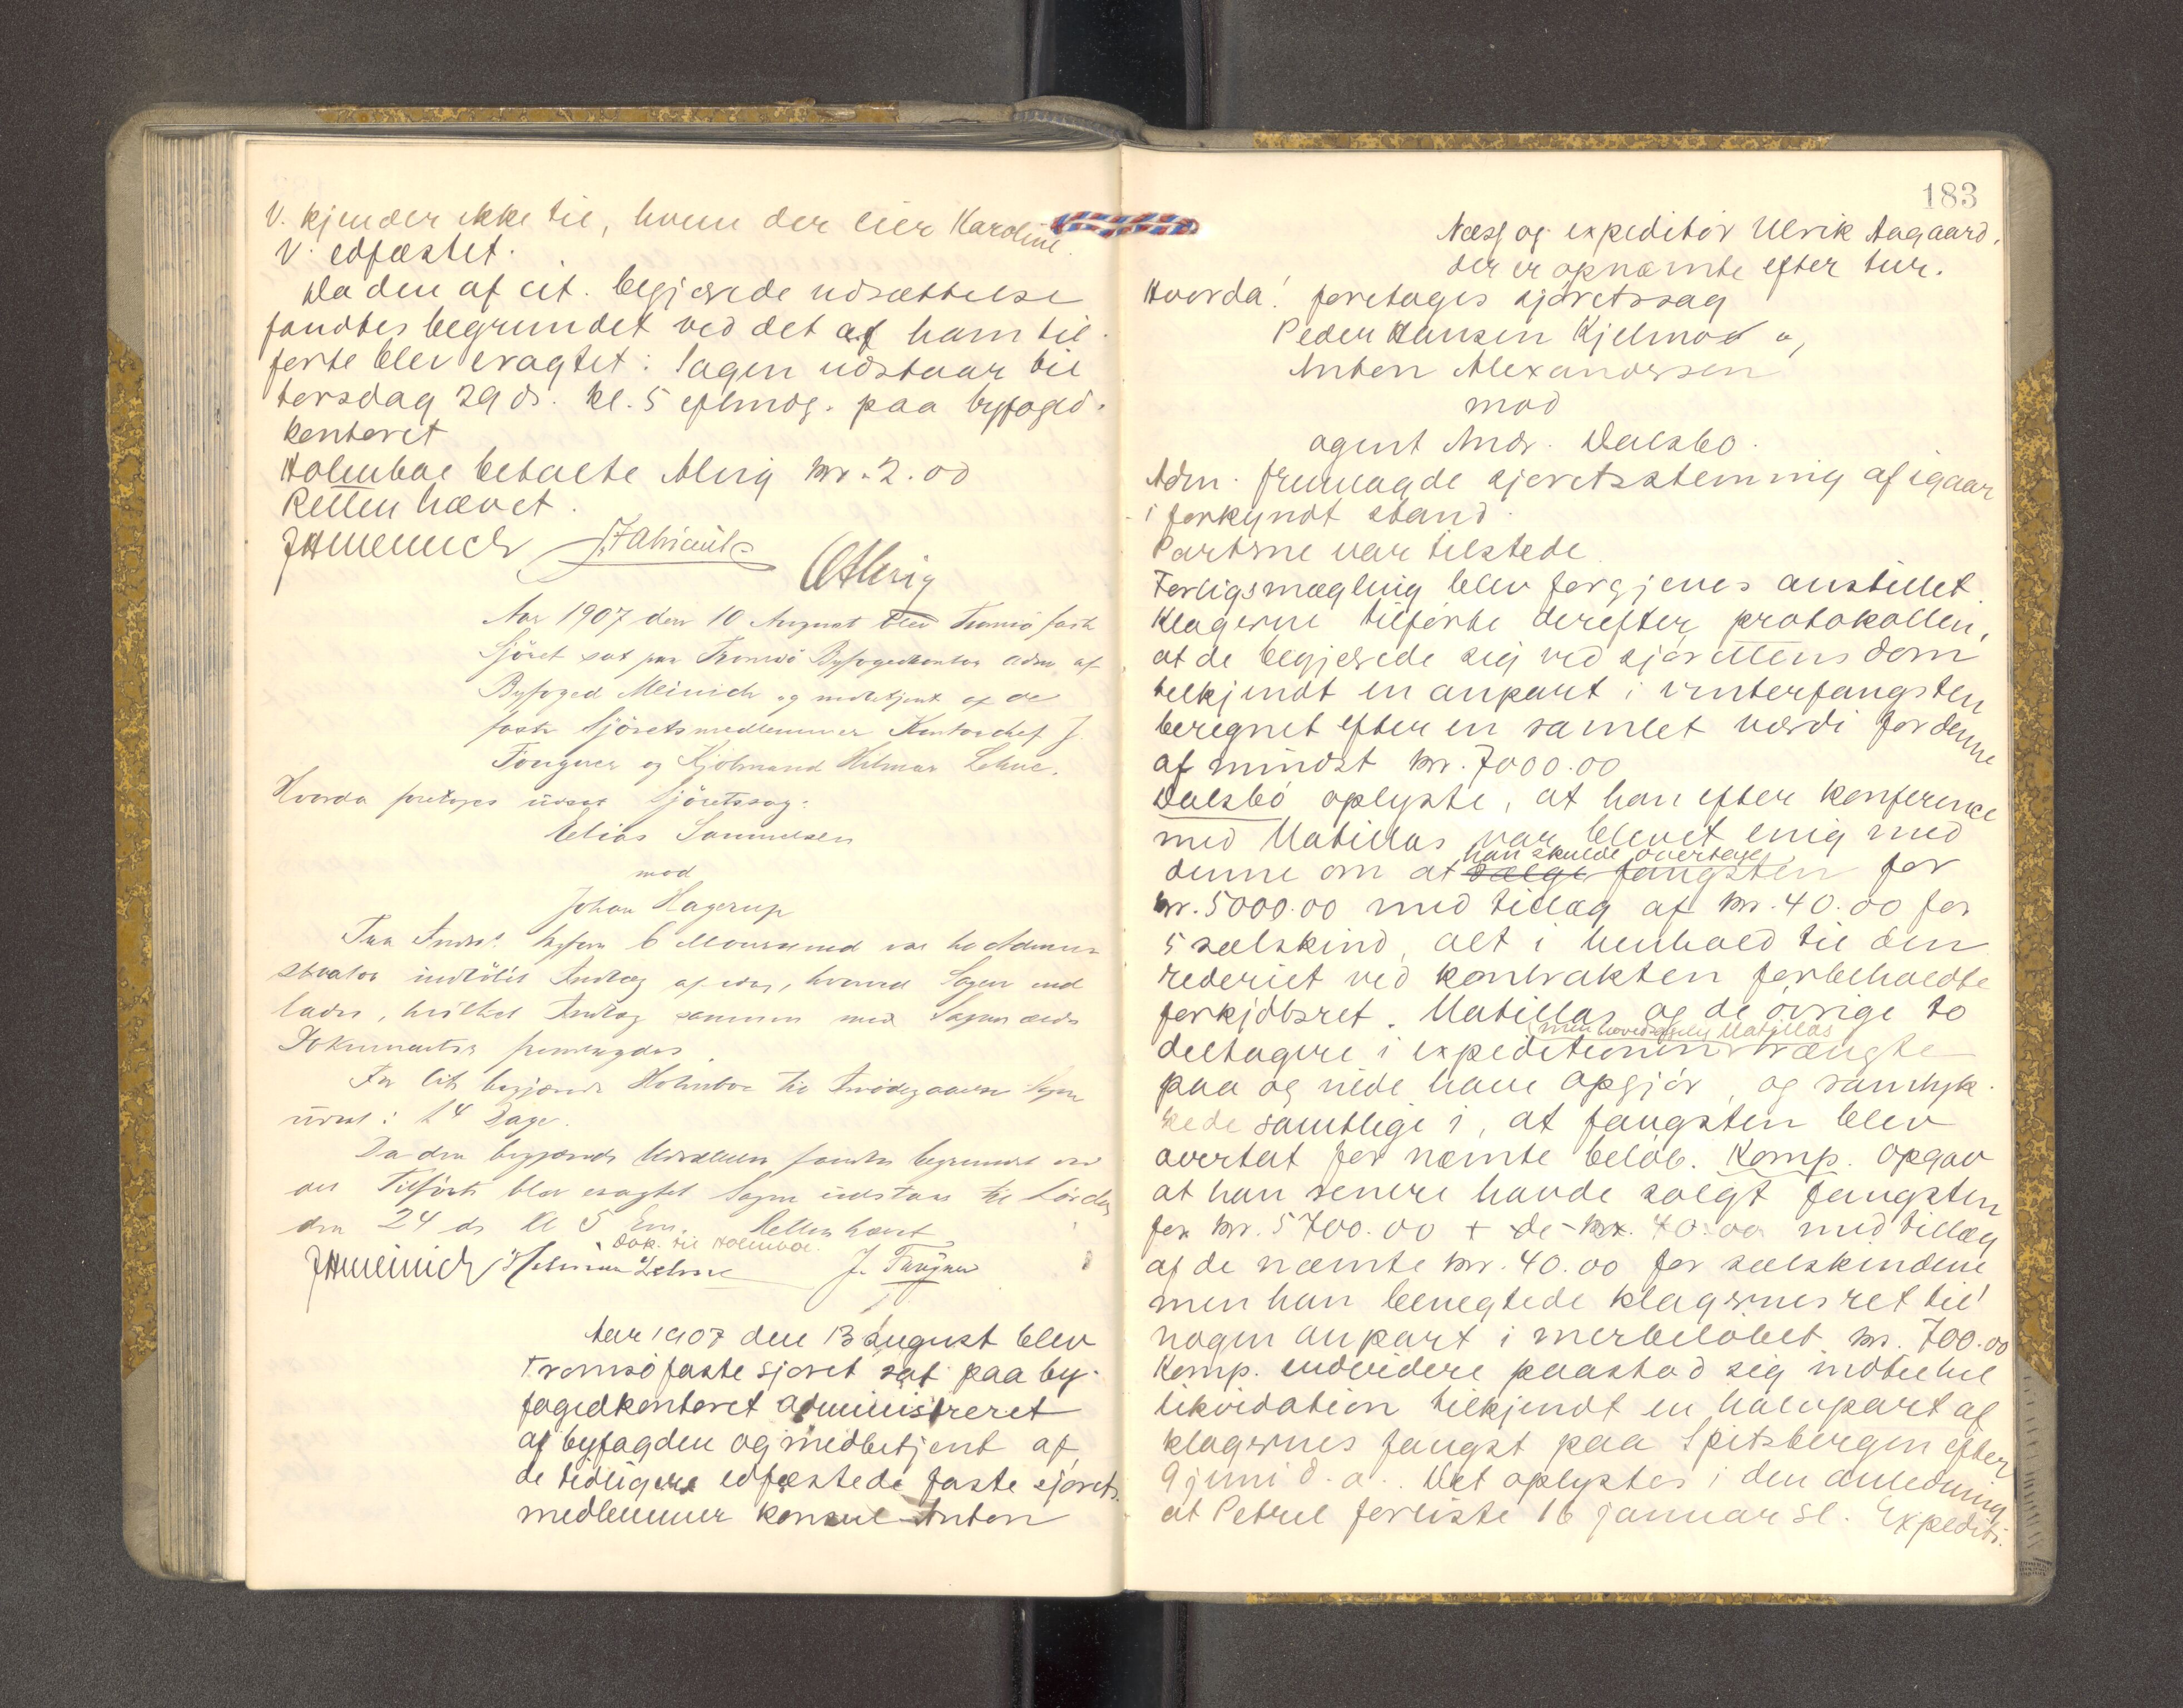 V. kjender ikke til, hvem der eier Karoline.
V. edfæstet.
Da den af cit. begjærede udsættelse
fandtes begrundet ved det af ham til-
førte blev eragtet: Sagen udstaar til
torsdag 29 ds. kl. 5 eftmdg. paa byfoged-
kontoret
Holmboe betalte Alvig kr. 2.00
Retten hævet.
JHMeinich J. Fabricius
OAlvig
Aar 1907 den 10 August blev Tromsø faste
Sjöret sat paa Tromsö Byfogedkontor adm. af
Byfoged Meinich og medbetjent af de
faste Sjöretsmedlemmer Kontorchef J.
Fougner og Kjöbmand Hilmar Lehne.
Hvorda foretoges udsat Sjöretssag:
Elias Samuelsen
mod
Johan Hagerup
Fra Indst. havde Admini-
strator indløst Indlæg af, hvorved Sagen ind-
lades, hvilket Indlæg sammen med Sagens
Dokumenter fremlagdes.
For Cit. begjærede Holmboe til Imødegaaelse Sagen
udsat i 14 Dage.
Da den begjærede Udsættelse fandtes begrundet ved
det Tilførte blev eragtet Sagen udstaar til Lördag
den 24 ds Kl 5 Em. Retten hævet
Dok. til Holmboe.
JHMeinich Hilmar Lehne J. Fougner
Aar 1907 den 13 august blev
Tromsø faste sjøret sat paa by-
fogedkontoret administreret
af byfogden og medbetjent af
de tidligere edfæstede faste sjørets-
medlemmer konsul Anton
183
Næss og expeditør Ulrik Aagaard,
der er opnævnte efter tur.
Hvorda: foretoges sjøretssag
Peder Hansen Kjelmoe o,
Anton Alexandersen
mod
agent Andr. Dalsbo.
Adm. fremlagde sjøretsstevning af igaar
i forkyndt stand.
Parterne var tilstede.
Forligsmægling blev forgjeves anstillet.
Klagerne tilførte derefter protokollen,
at de begjærede sig ved sjørettens dom
tilkjendt en anpart i vinterfangsten
beregnet efter en samlet værdi for denne
af mindst kr. 7000.00
Dalsbö oplyste, at han efter konference
med Matillas var blevet enig med
han skulde overtage
denne om at sælge fangsten for
kr. 5000.00 med tillæg af kr. 40.00 for
5 sælskind, alt i henhold til den
rederiet ved kontrakten forbeholdte
forkjöbsret. Matillas og de øvrige to
men hovedsagelig Matillas
deltagere i expeditionen trængte
paa og vilde have opgjör, og samtyk-
kede samtlige i, at fangsten blev
overtat for nævnte beløb. Komp. opgav
at han senere havde solgt fangsten
for kr. 5700.00 + de kr. 40.00 med tillæg
af de nævnte kr. 40.00 for sælskindene
men han benegtede klagernes ret til
nogen anpart i merbeløbet kr. 700.00
Komp. endvidere paastod sig indtil
likvidation tilkjendt en halvpart af
klagernes fangst paa Spitsbergen efter
9 juni d. a. Det oplystes i den anledning
at Petrel forliste 16 januar sl. Expediti-